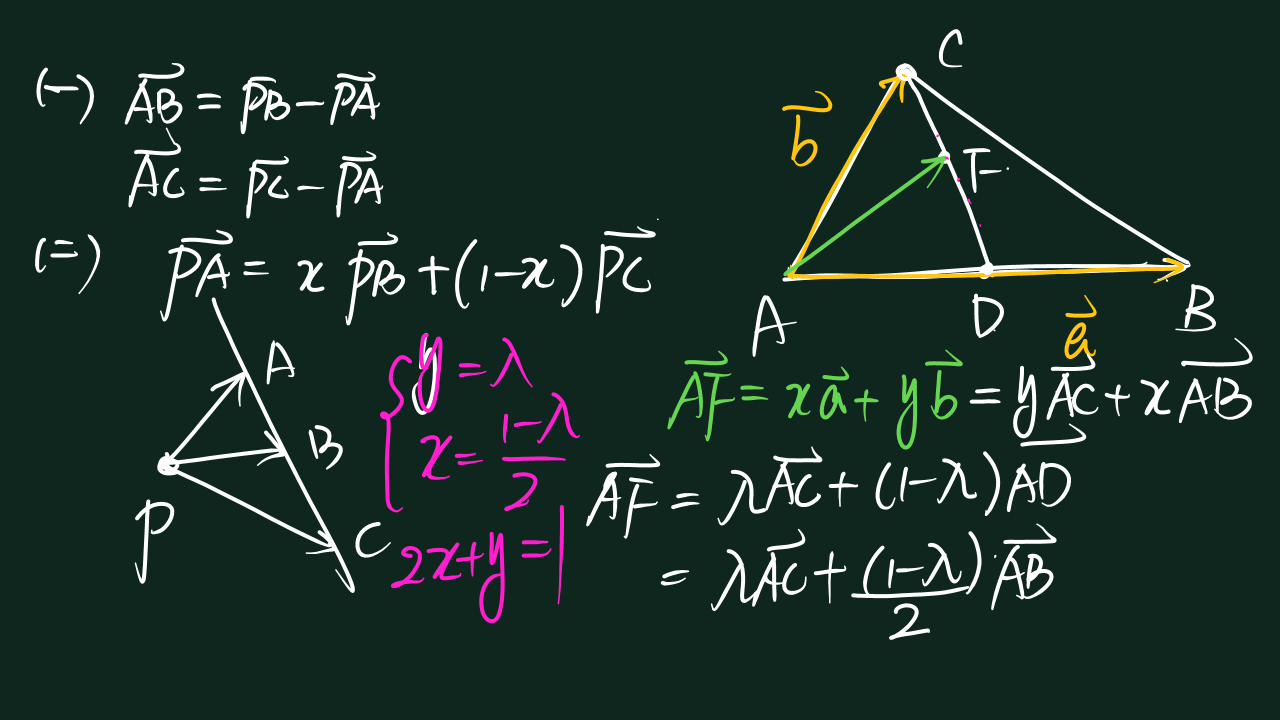 (一) \overrightarrow{AB} = \overrightarrow{PB} - \overrightarrow{PA}
\overrightarrow{AC} = \overrightarrow{PC} - \overrightarrow{PA}
(二) \overrightarrow{PA} = x \overrightarrow{PB} + (1-x) \overrightarrow{PC}
A
B
C
P
y = λ
x = \frac{1-λ}{2}
2x+y=1
C
\vec{b}
F
A
D
B
\vec{a}
\overrightarrow{AF} = x\vec{a} + y\vec{b} = y\overrightarrow{AC} + x\overrightarrow{AB}
\overrightarrow{AF} = λ\overrightarrow{AC} + (1-λ)\overrightarrow{AD}
= λ\overrightarrow{AC} + \frac{(1-λ)}{2}·\overrightarrow{AB}